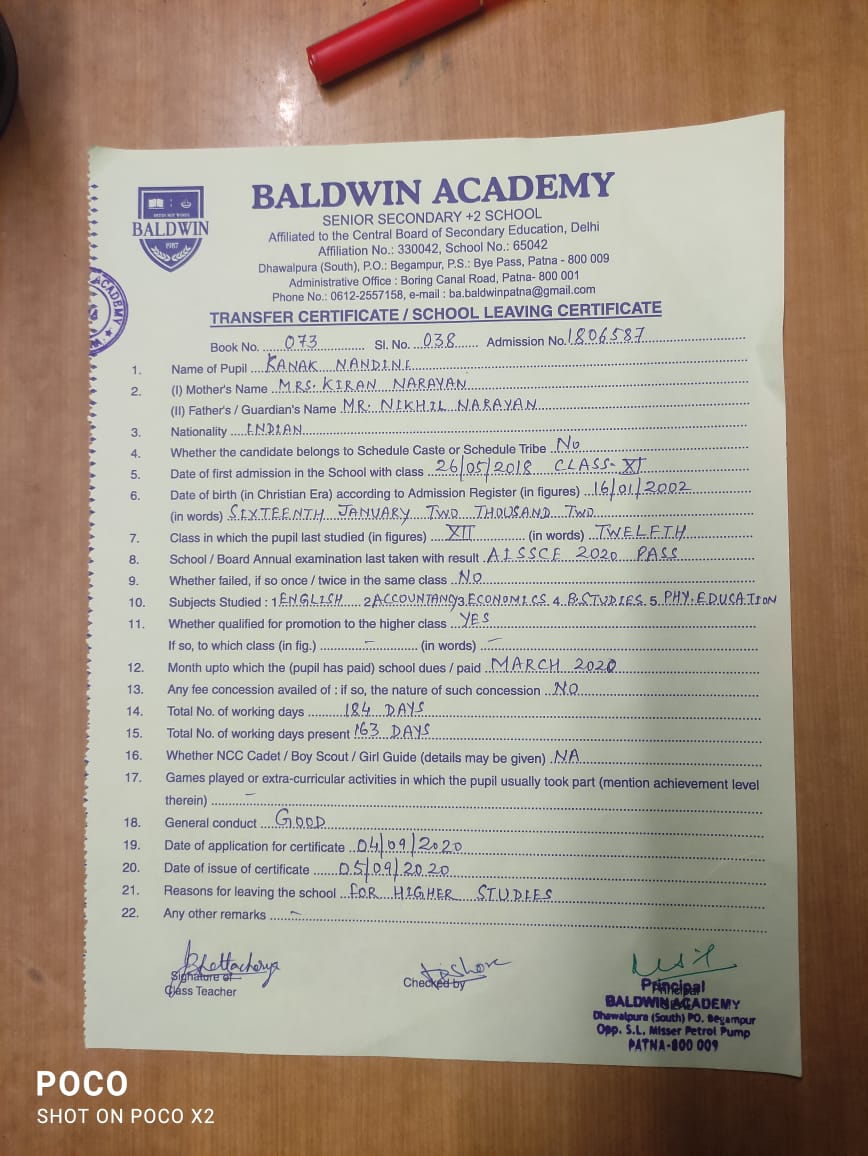 BALDWIN ACADEMY
SENIOR SECONDARY +2 SCHOOL
Affiliated to the Central Board of Secondary Education, Delhi
Affiliation No.: 330042, School No.: 65042
Dhawalpura (South), P.O.: Begampur, P.S.: Bye Pass, Patna - 800 009
Administrative Office : Boring Canal Road, Patna- 800 001
Phone No.: 0612-2557158, e-mail : ba.baldwinpatna@gmail.com
BALDWIN
1987
ACADEMY
TRANSFER CERTIFICATE / SCHOOL LEAVING CERTIFICATE
Book No. 073 Sl. No. 038 Admission No. 1806587
1. Name of Pupil KANAK NANDINI
2. (I) Mother's Name MRS. KIRAN NARAYAN
(II) Father's / Guardian's Name MR. NIKHIL NARAYAN
3. Nationality INDIAN
4. Whether the candidate belongs to Schedule Caste or Schedule Tribe No
5. Date of first admission in the School with class 26/05/2018 CLASS-XI
6. Date of birth (in Christian Era) according to Admission Register (in figures) 16/01/2002
(in words) SIXTEENTH JANUARY TWO THOUSAND TWO
7. Class in which the pupil last studied (in figures) XII (in words) TWELFTH
8. School / Board Annual examination last taken with result AISSCE 2020 PASS
9. Whether failed, if so once / twice in the same class NO
10. Subjects Studied : 1 ENGLISH 2 ACCOUNTANCY 3 ECONOMICS 4. B.STUDIES 5. PHY. EDUCATION
11. Whether qualified for promotion to the higher class YES
If so, to which class (in fig.) - (in words) -
12. Month upto which the (pupil has paid) school dues / paid MARCH 2020
13. Any fee concession availed of : if so, the nature of such concession NO
14. Total No. of working days 184 DAYS
15. Total No. of working days present 163 DAYS
16. Whether NCC Cadet / Boy Scout / Girl Guide (details may be given) NA
17. Games played or extra-curricular activities in which the pupil usually took part (mention achievement level
therein) -
18. General conduct GOOD
19. Date of application for certificate 04/09/2020
20. Date of issue of certificate 05/09/2020
21. Reasons for leaving the school FOR HIGHER STUDIES
22. Any other remarks -
Bhattacharya
Signature of
Class Teacher
Checked by
Principal
BALDWIN ACADEMY
Dhawalpura (South) PO. Begampur
Opp. S.L. Misser Petrol Pump
PATNA-800 009
POCO
SHOT ON POCO X2